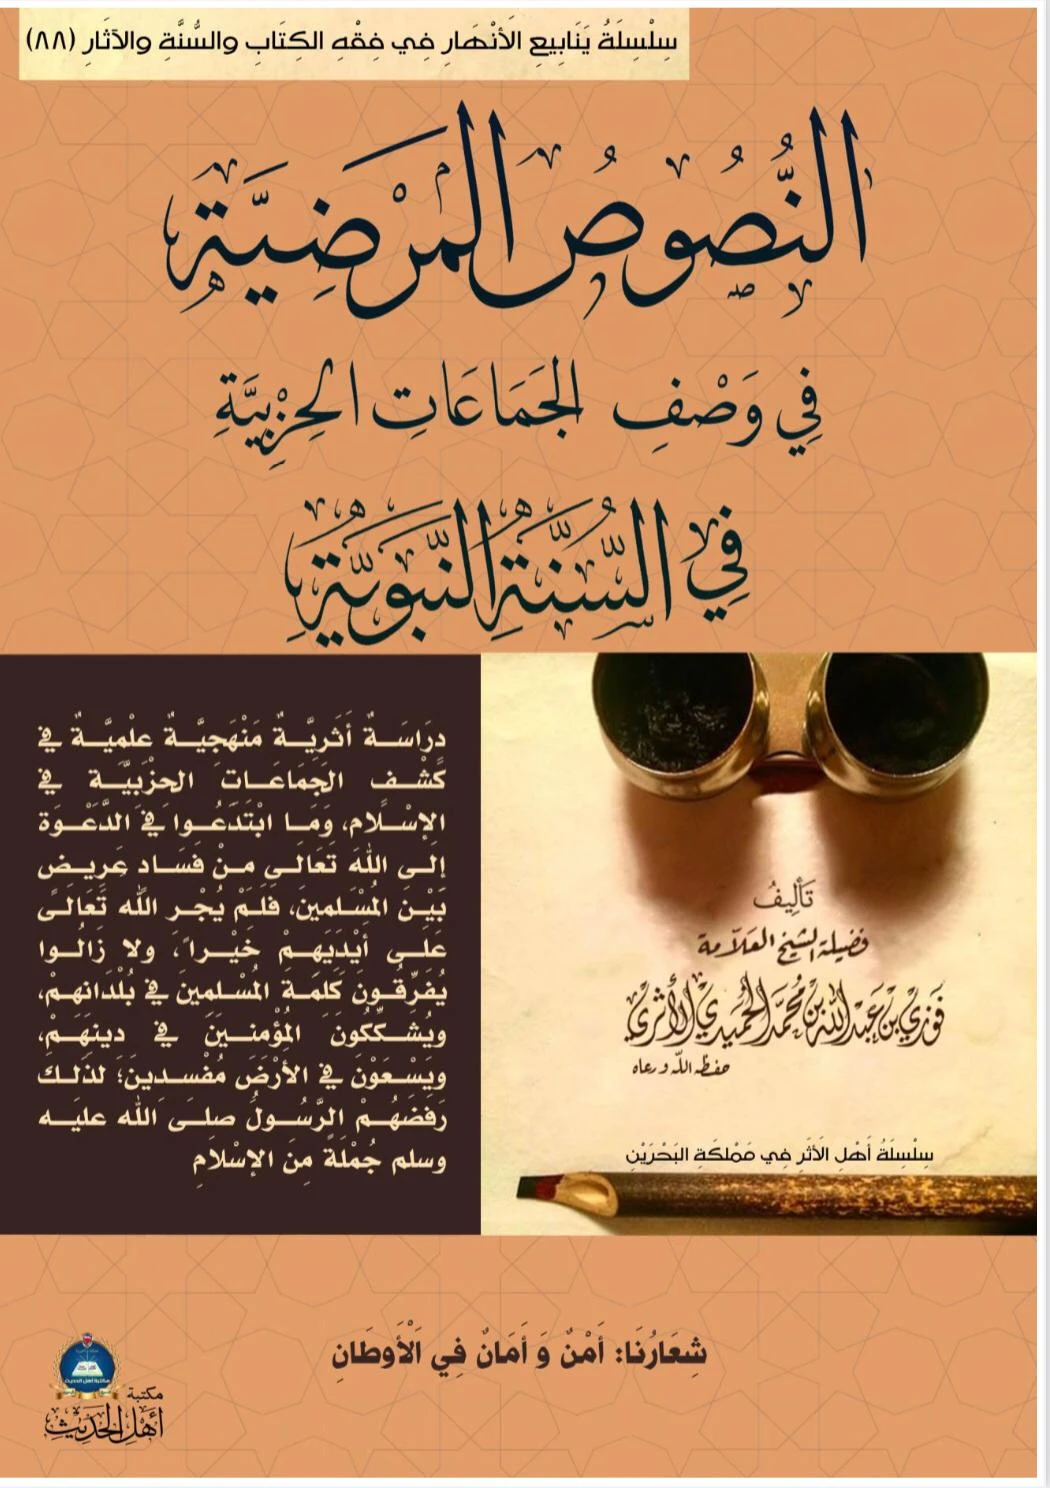 سِلْسِلَةُ يَنَابِيعِ الأَنْهَارِ فِي فِقْهِ الكِتَابِ والسُّنَّةِ والآثَارِ (٨٨)
النُّصُوصُ المَرْضِيَّة
فِي وَصْفِ الجَمَاعَاتِ الحِزْبِيَّةِ
فِي السُّنَّةِ النَّبَوِيَّةِ
دِرَاسَةٌ أَثَرِيَّةٌ مَنْهَجِيَّةٌ عِلْمِيَّةٌ فِي
كَشْفِ الجَمَاعَاتِ الحِزْبِيَّةِ فِي
الإِسْلَامِ، وَمَا ابْتَدَعُوا فِي الدَّعْوَةِ
إِلَى اللهِ تَعَالَى مِنْ فَسَادٍ عَرِيضٍ
بَيْنَ المُسْلِمِينَ، فَلَمْ يُجْرِ اللهُ تَعَالَى
عَلَى أَيْدِيهِمْ خَيْراً، ولا زَالُوا
يُفَرِّقُونَ كَلِمَةَ المُسْلِمِينَ فِي بُلْدَانِهِمْ،
ويُشَكِّكُونَ المُؤْمِنِينَ فِي دِينِهِمْ،
ويَسْعَوْنَ فِي الأَرْضِ مُفْسِدِينَ؛ لِذَلِكَ
رَفَضَهُمْ الرَّسُولُ صلى الله عليه
وسلم جُمْلَةً مِنَ الإِسْلَامِ
تَأْلِيفُ
فضيلة الشيخ العلّامة
فَوْزِي بْنِ عَبْدِاللهِ بْنِ مُحَمَّدٍ الحُمَيْدِيِّ الأَثَرِيِّ
حفظه الله ورعاه
سِلْسِلَةُ أَهْلِ الأَثَرِ فِي مَمْلَكَةِ البَحْرَيْنِ
شِعَارُنَا: أَمْنٌ وَ أَمَانٌ فِي الْأَوطَانِ
مكتبة
أهل الحديث